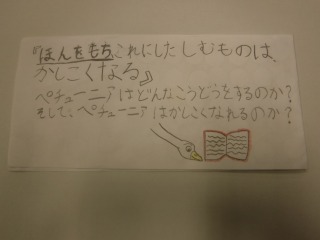 『ほんをもち、これにしたしむものは、
かしこくなる』
ペチューニアはどんなこうどうをするのか?
そして、ペチューニアはかしこくなれるのか?